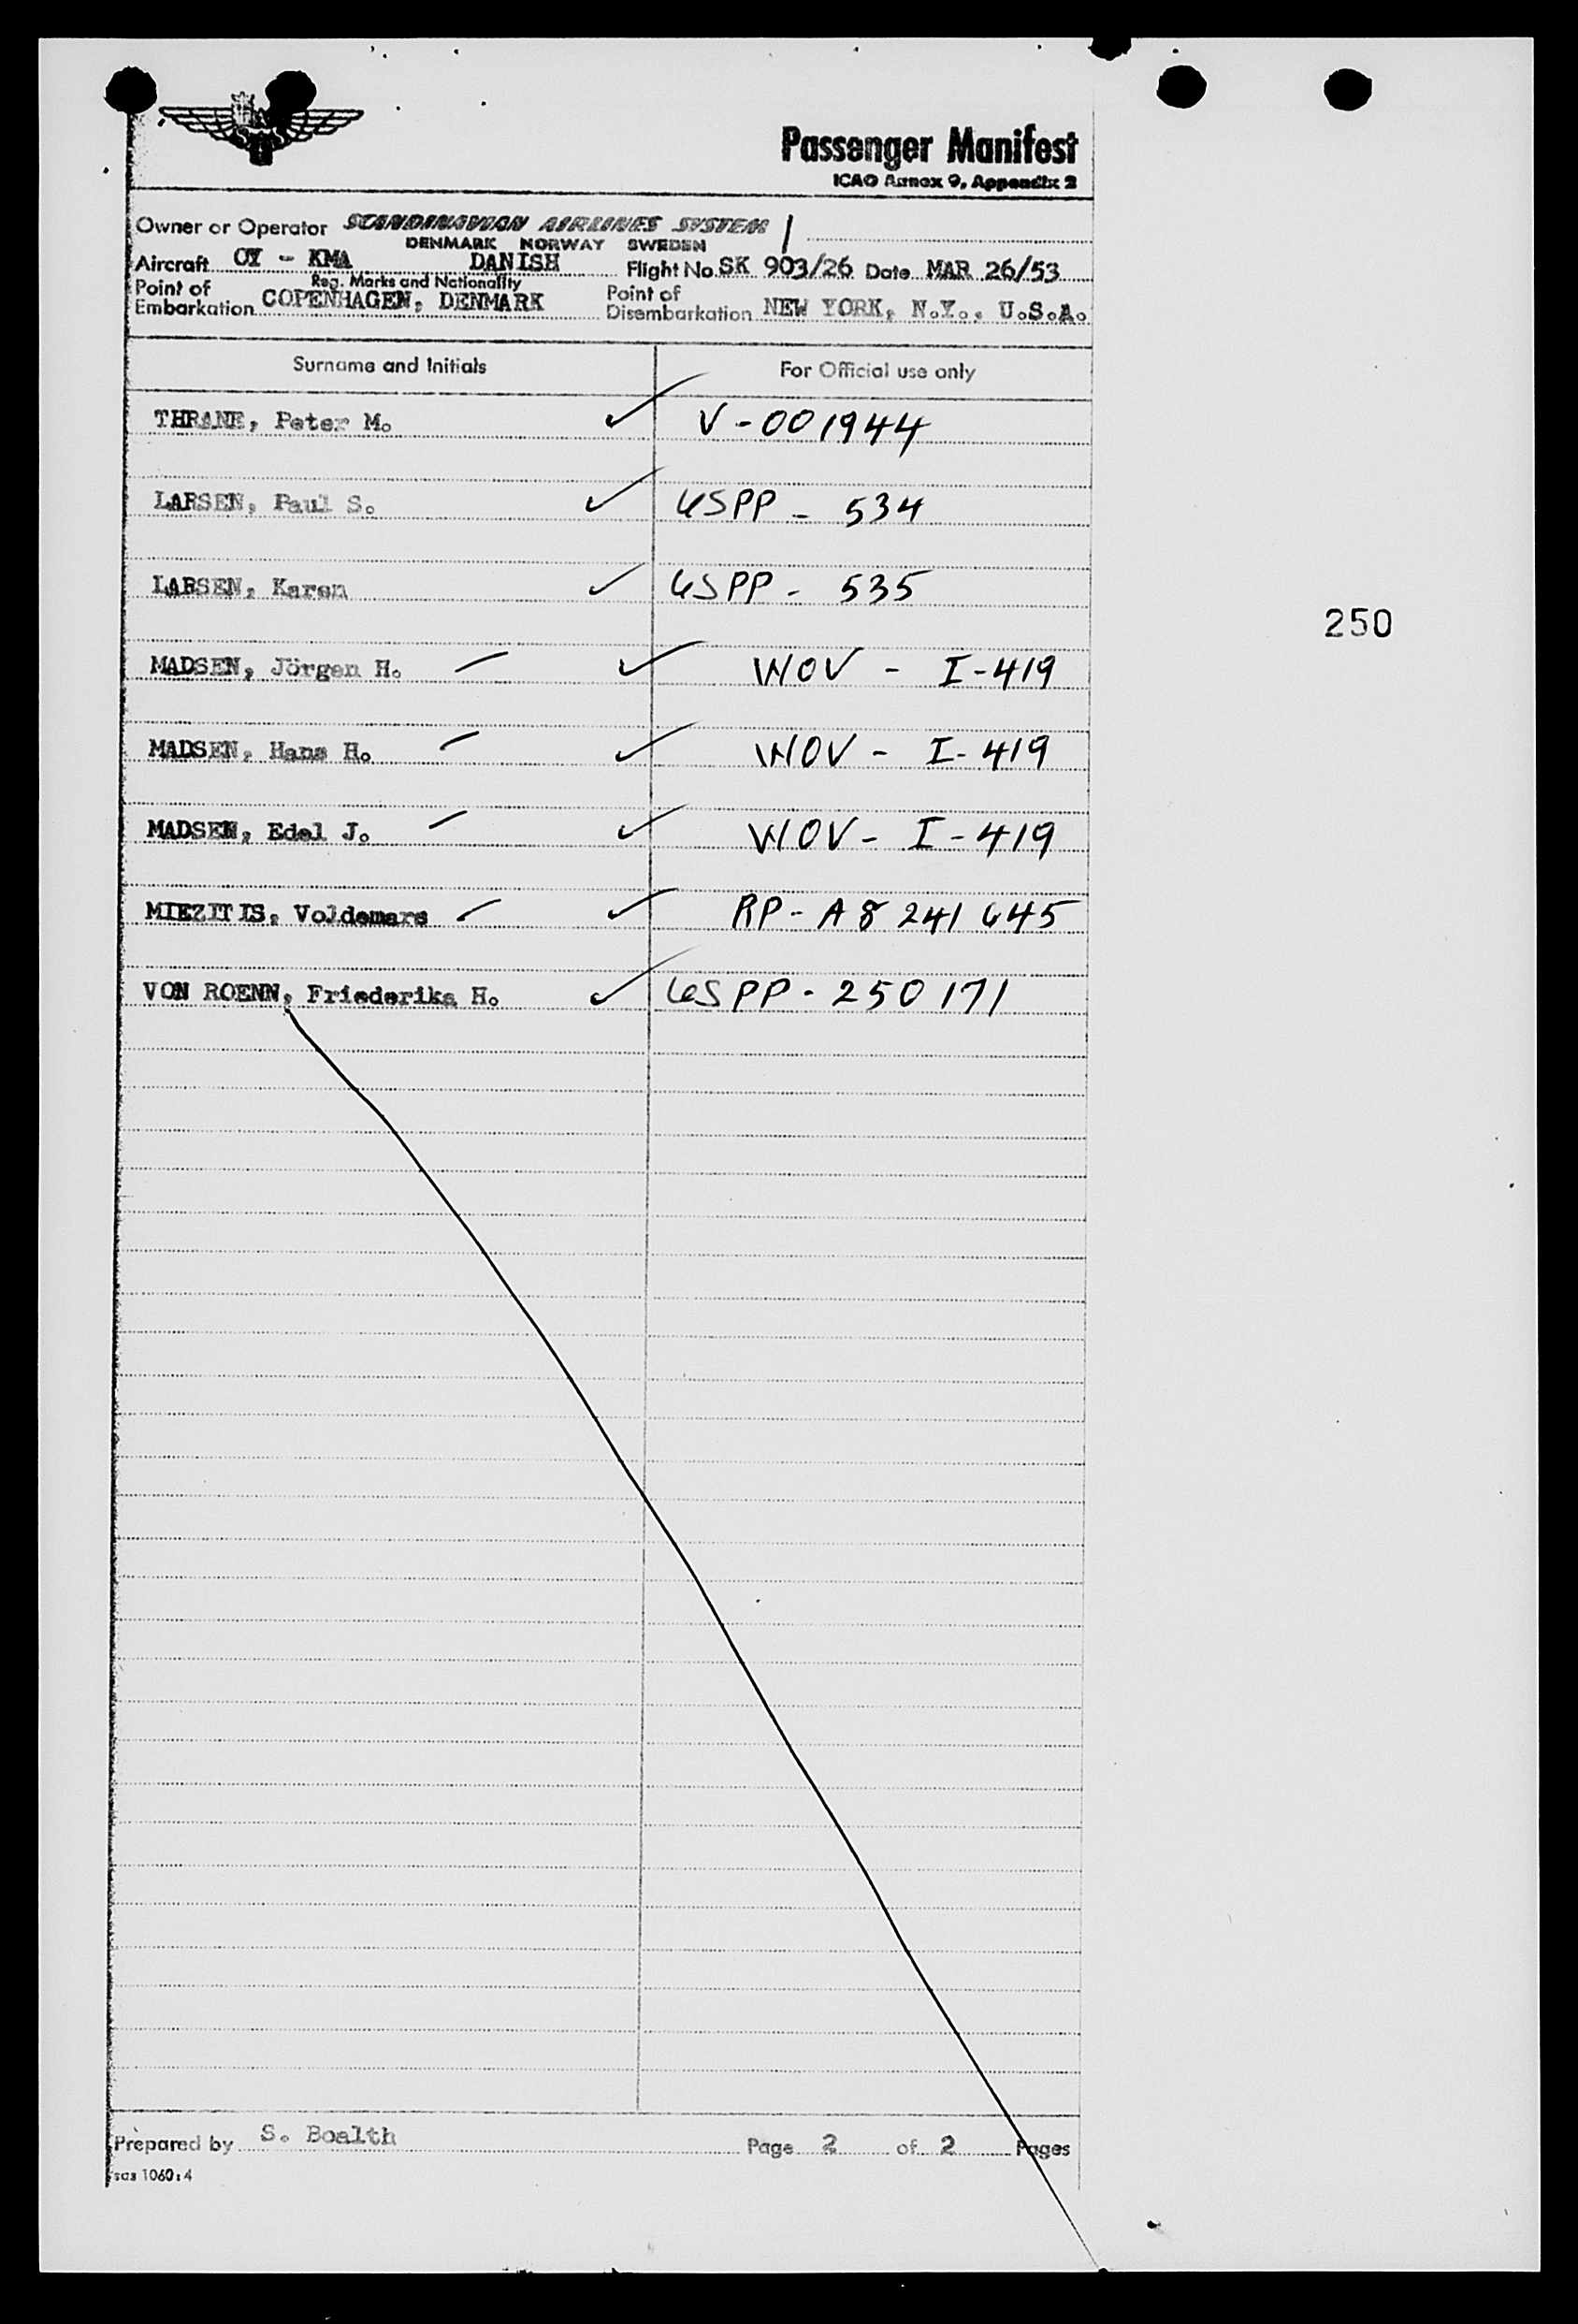 Passenger Manifest
ICAO Annex 9, Appendix 2
Owner or Operator SCANDINAVIAN AIRLINES SYSTEM
DENMARK NORWAY SWEDEN
Aircraft OY - KMA DANISH Flight No. SK 903/26 Date MAR 26/53
Reg. Marks and Nationality
Point of Embarkation COPENHAGEN, DENMARK Point of Disembarkation NEW YORK, N.Y., U.S.A.
Surname and Initials For Official use only
THRANE, Peter M. ✓ V-001944
LARSEN, Paul S. ✓ USPP - 534
LARSEN, Karen ✓ USPP - 535
250
MADSEN, Jörgen H. — ✓ WOV - I-419
MADSEN, Hans H. — ✓ WOV - I-419
MADSEN, Edel J. — ✓ WOV - I-419
MIEZITIS, Voldemars — ✓ RP-A8 241 645
VON ROENN, Friederika H. ✓ USPP - 250171
Prepared by S. Boalth Page 2 of 2 Pages
sas 1060:4